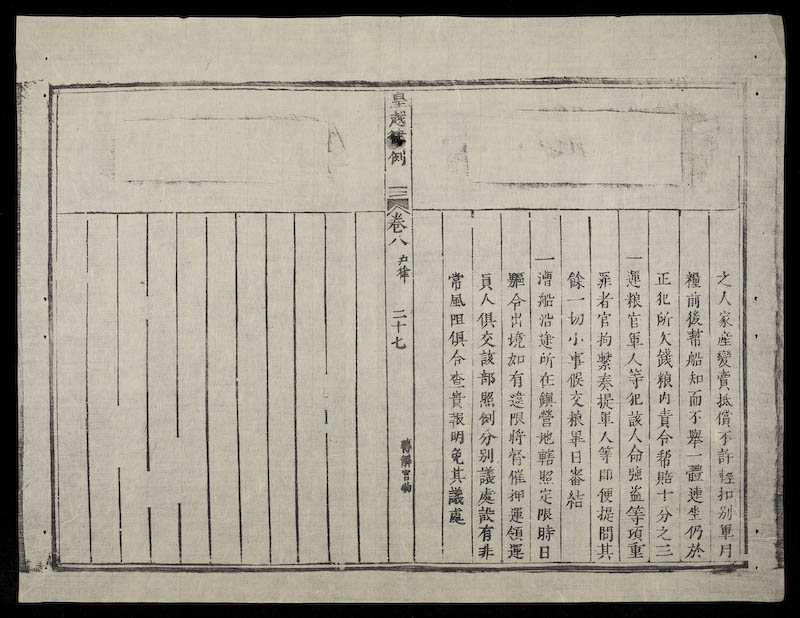 之人家産變賣抵償不許徑扣别軍月
糧前後幫船知而不舉一體連坐仍於
正犯所欠錢粮内責令幫賠十分之三
一運粮官軍人等犯該人命強盗等項重
罪者官拘繫奏提軍人等即便提問其
餘一切小事候交粮畢日審結
一漕船沿途所在鎮營地轄照定限時日
驅令出境如有違限將督催押運領運
員人俱交該部照例分别議處設有非
常風阻俱令查實報明免其議處
轉解官物
皇越律例 三 卷八 户律 二十七